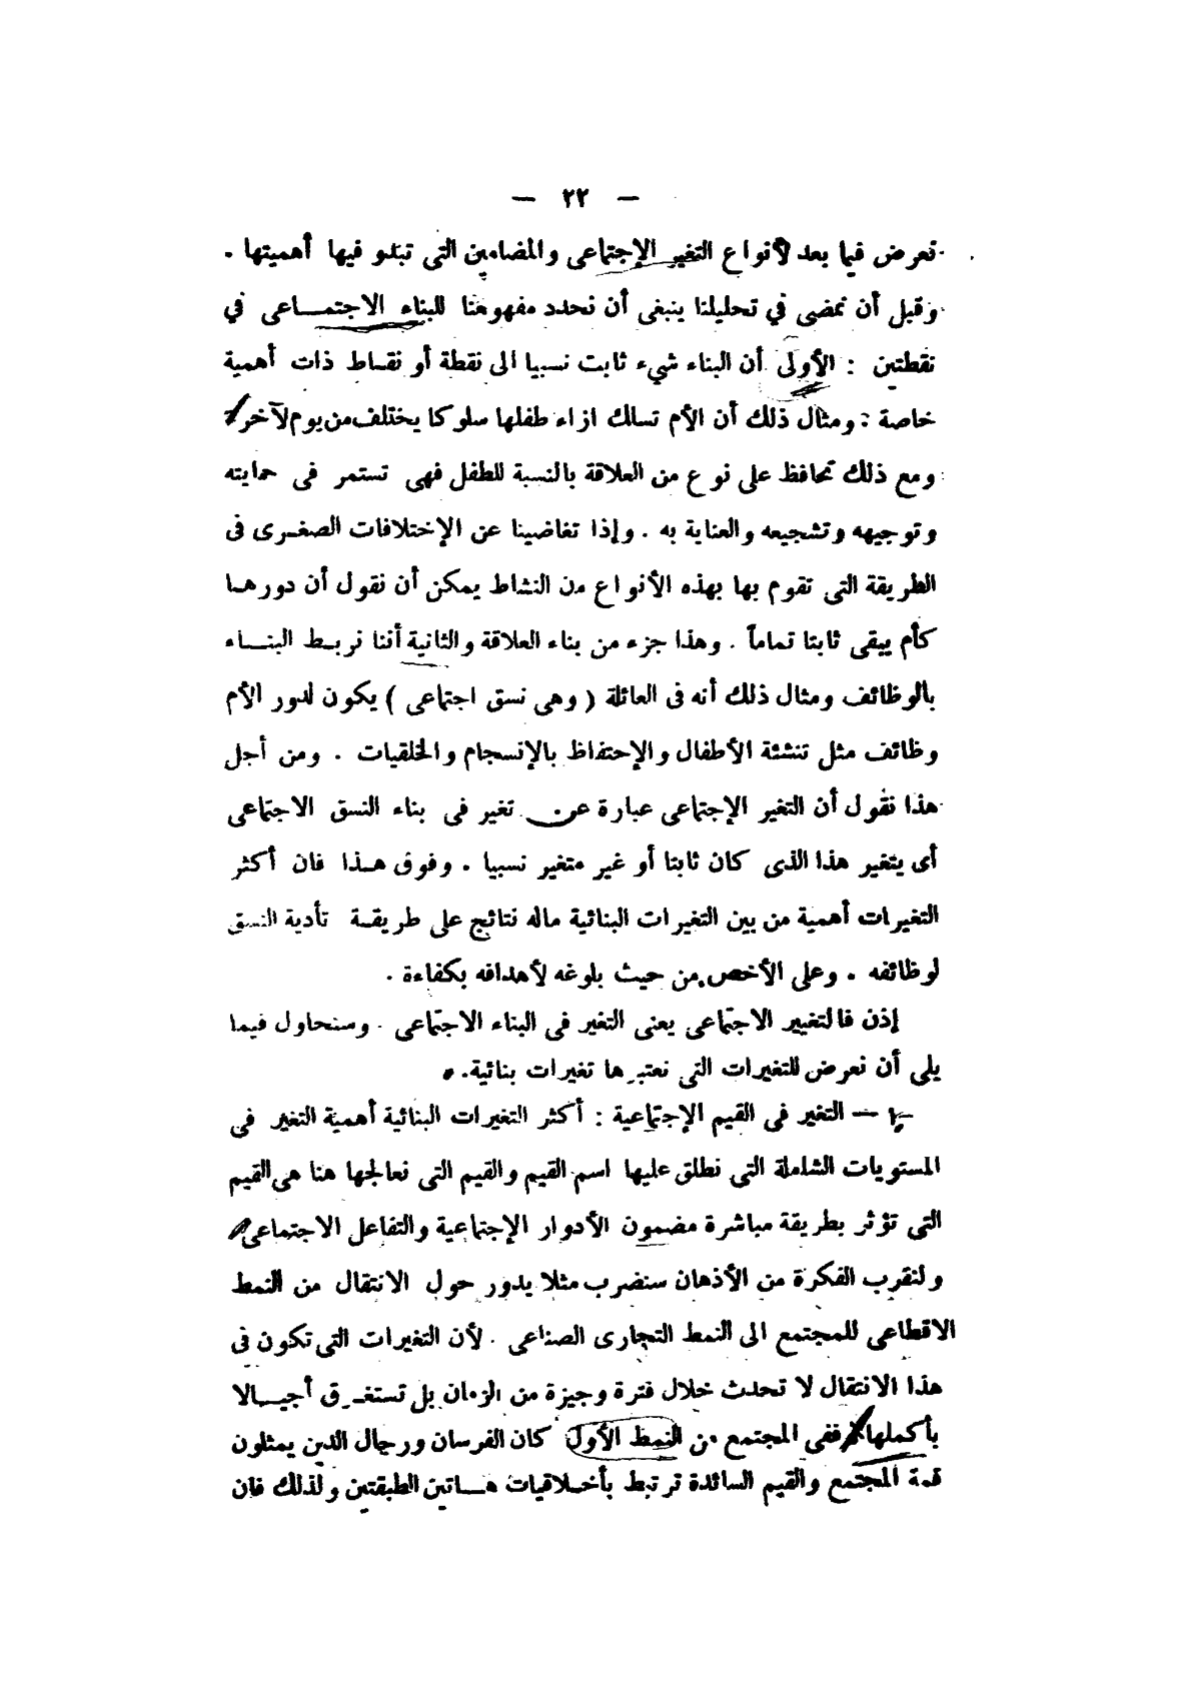 — ٢٢ —
نعرض فيما بعد لأنواع التغير الإجتماعى والمضامين التى تبدو فيها أهميتها .
وقبل أن نمضى في تحليلنا ينبغى أن نحدد مفهومنا للبناء الاجتمـــاعى في
نقطتين : الأولى أن البناء شيء ثابت نسبيا الى نقطة أو نقـاط ذات أهمية
خاصة : ومثال ذلك أن الأم تسلك ازاء طفلها سلوكا يختلف من يوم لآخر
ومع ذلك تحافظ على نوع من العلاقة بالنسبة للطفل فهى تستمر فى حمايته
وتوجيهه وتشجيعه والعناية به . وإذا تغاضينا عن الإختلافات الصغـرى فى
الطريقة التى تقوم بها بهذه الأنواع من النشاط يمكن أن نقول أن دورهـا
كأم يبقى ثابتا تماماً . وهذا جزء من بناء العلاقة والثانية أننا نربـط البنـــاء
بالوظائف ومثال ذلك أنه فى العائلة ( وهى نسق اجتماعى ) يكون لدور الأم
وظائف مثل تنشئة الأطفال والإحتفاظ بالإنسجام والخلقيات . ومن أجل
هذا نقول أن التغير الإجتماعى عبارة عن تغير فى بناء النسق الاجتماعى
أى يتغير هذا الذى كان ثابتا أو غير متغير نسبيا . وفوق هـذا فان أكثر
التغيرات أهمية من بين التغيرات البنائية ماله نتائج على طريقـة تأدية النسق
لوظائفه . وعلى الأخص من حيث بلوغه لأهدافه بكفاءة .
إذن فالتغيير الاجتماعى يعنى التغير فى البناء الاجتماعى . وسنحاول فيما
يلى أن نعرض للتغيرات التى نعتبرها تغيرات بنائية .
١ — التغير فى القيم الإجتماعية : أكثر التغيرات البنائية أهمية التغير فى
المستويات الشاملة التى نطلق عليها اسم القيم والقيم التى نعالجها هنا هى القيم
التى تؤثر بطريقة مباشرة مضمون الأدوار الإجتماعية والتفاعل الاجتماعى
ولنقرب الفكرة من الأذهان سنضرب مثلا يدور حول الانتقال من النمط
الاقطاعى للمجتمع الى النمط التجارى الصناعى . لأن التغيرات التى تكون فى
هذا الانتقال لا تحدث خلال فترة وجيزة من الزمان بل تستغـرق أجيـالا
بأكملها ففى المجتمع من النمط الأول كان الفرسان ورجال الدين يمثلون
قمة المجتمع والقيم السائدة ترتبط بأخـلاقيات هـاتين الطبقتين ولذلك فان